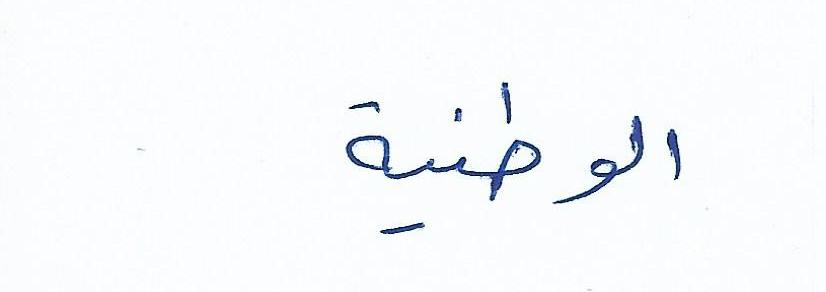 الوطنية